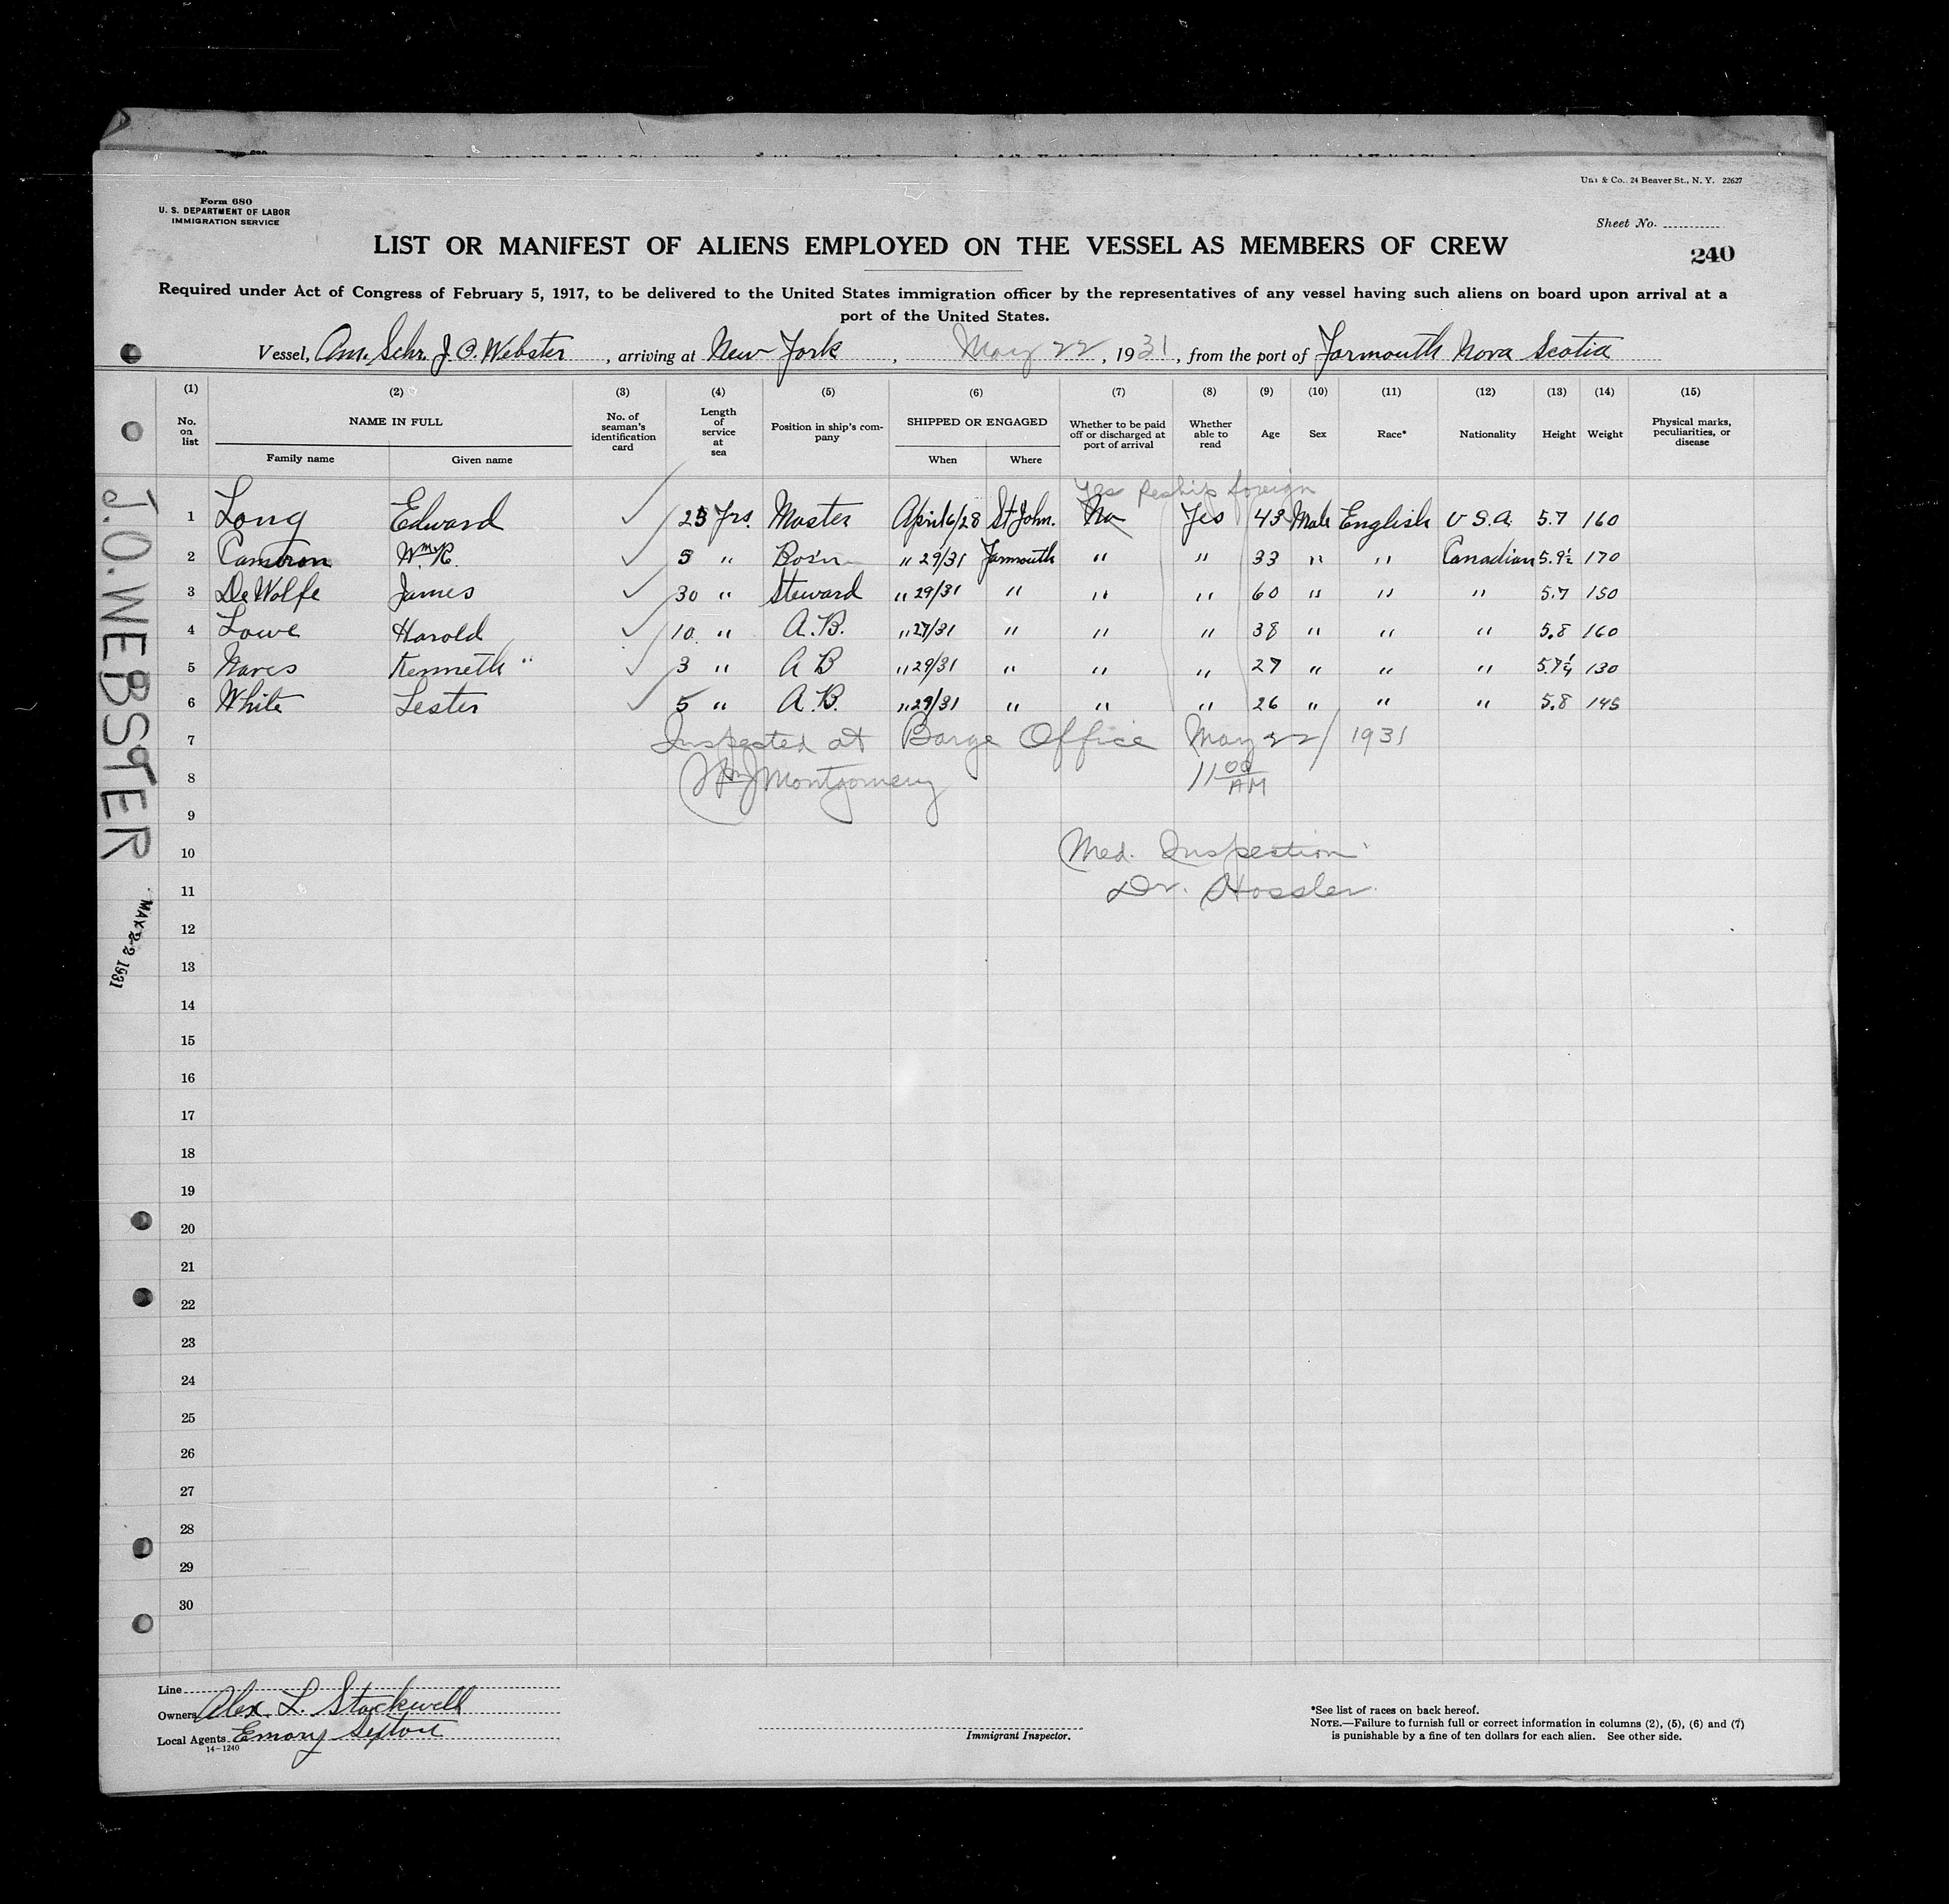 Form 680
U. S. DEPARTMENT OF LABOR
IMMIGRATION SERVICE
& Co., 24 Beaver St., N. Y. 22627
Sheet No.
240
LIST OR MANIFEST OF ALIENS EMPLOYED ON THE VESSEL AS MEMBERS OF CREW
Required under Act of Congress of February 5, 1917, to be delivered to the United States immigration officer by the representatives of any vessel having such aliens on board upon arrival at a
port of the United States.
Vessel, Am. Schr. J. O. Webster, arriving at New York, May 22, 1931, from the port of Yarmouth Nova Scotia
(1) (2) (3) (4) (5) (6) (7) (8) (9) (10) (11) (12) (13) (14) (15)
No. on list
NAME IN FULL
Family name
Given name
No. of seaman's identification card
Length of service at sea
Position in ship's company
SHIPPED OR ENGAGED
When
Where
Whether to be paid off or discharged at port of arrival
Whether able to read
Age
Sex
Race*
Nationality
Height
Weight
Physical marks, peculiarities, or disease
Yes Reship foreign
1 Long Edward ✓ 25 Yrs. Master April 6/28 St John. No Yes 43 Male English U.S.A. 5.7 160
2 Cameron Wm. R. ✓ 5 " Bos'n " 29/31 Yarmouth " " 33 " " Canadian 5.9½ 170
3 DeWolfe James ✓ 30 " Steward " 29/31 " " " 60 " " " 5.7 150
4 Lowe Harold ✓ 10 " A.B. " 27/31 " " " 38 " " " 5.8 160
5 Kenneth " ✓ 3 " A B " 29/31 " " " 27 " " " 5.7¼ 130
6 White Lester ✓ 5 " A.B. " 29/31 " " " 26 " " " 5.8 145
7 Inspected at Barge Office May 22/1931
8 Wm J Montgomery 11 00 AM
9
10 Med. Inspection
11 Dr. Hossler
12
13
14
15
16
17
18
19
20
21
22
23
24
25
26
27
28
29
30
J.O. WEBSTER
MAY 22 1931
Line
Owners Alex. L. Stockwell
Local Agents Emory Sexton
14-1240
Immigrant Inspector.
*See list of races on back hereof.
NOTE.—Failure to furnish full or correct information in columns (2), (5), (6) and (7)
is punishable by a fine of ten dollars for each alien. See other side.